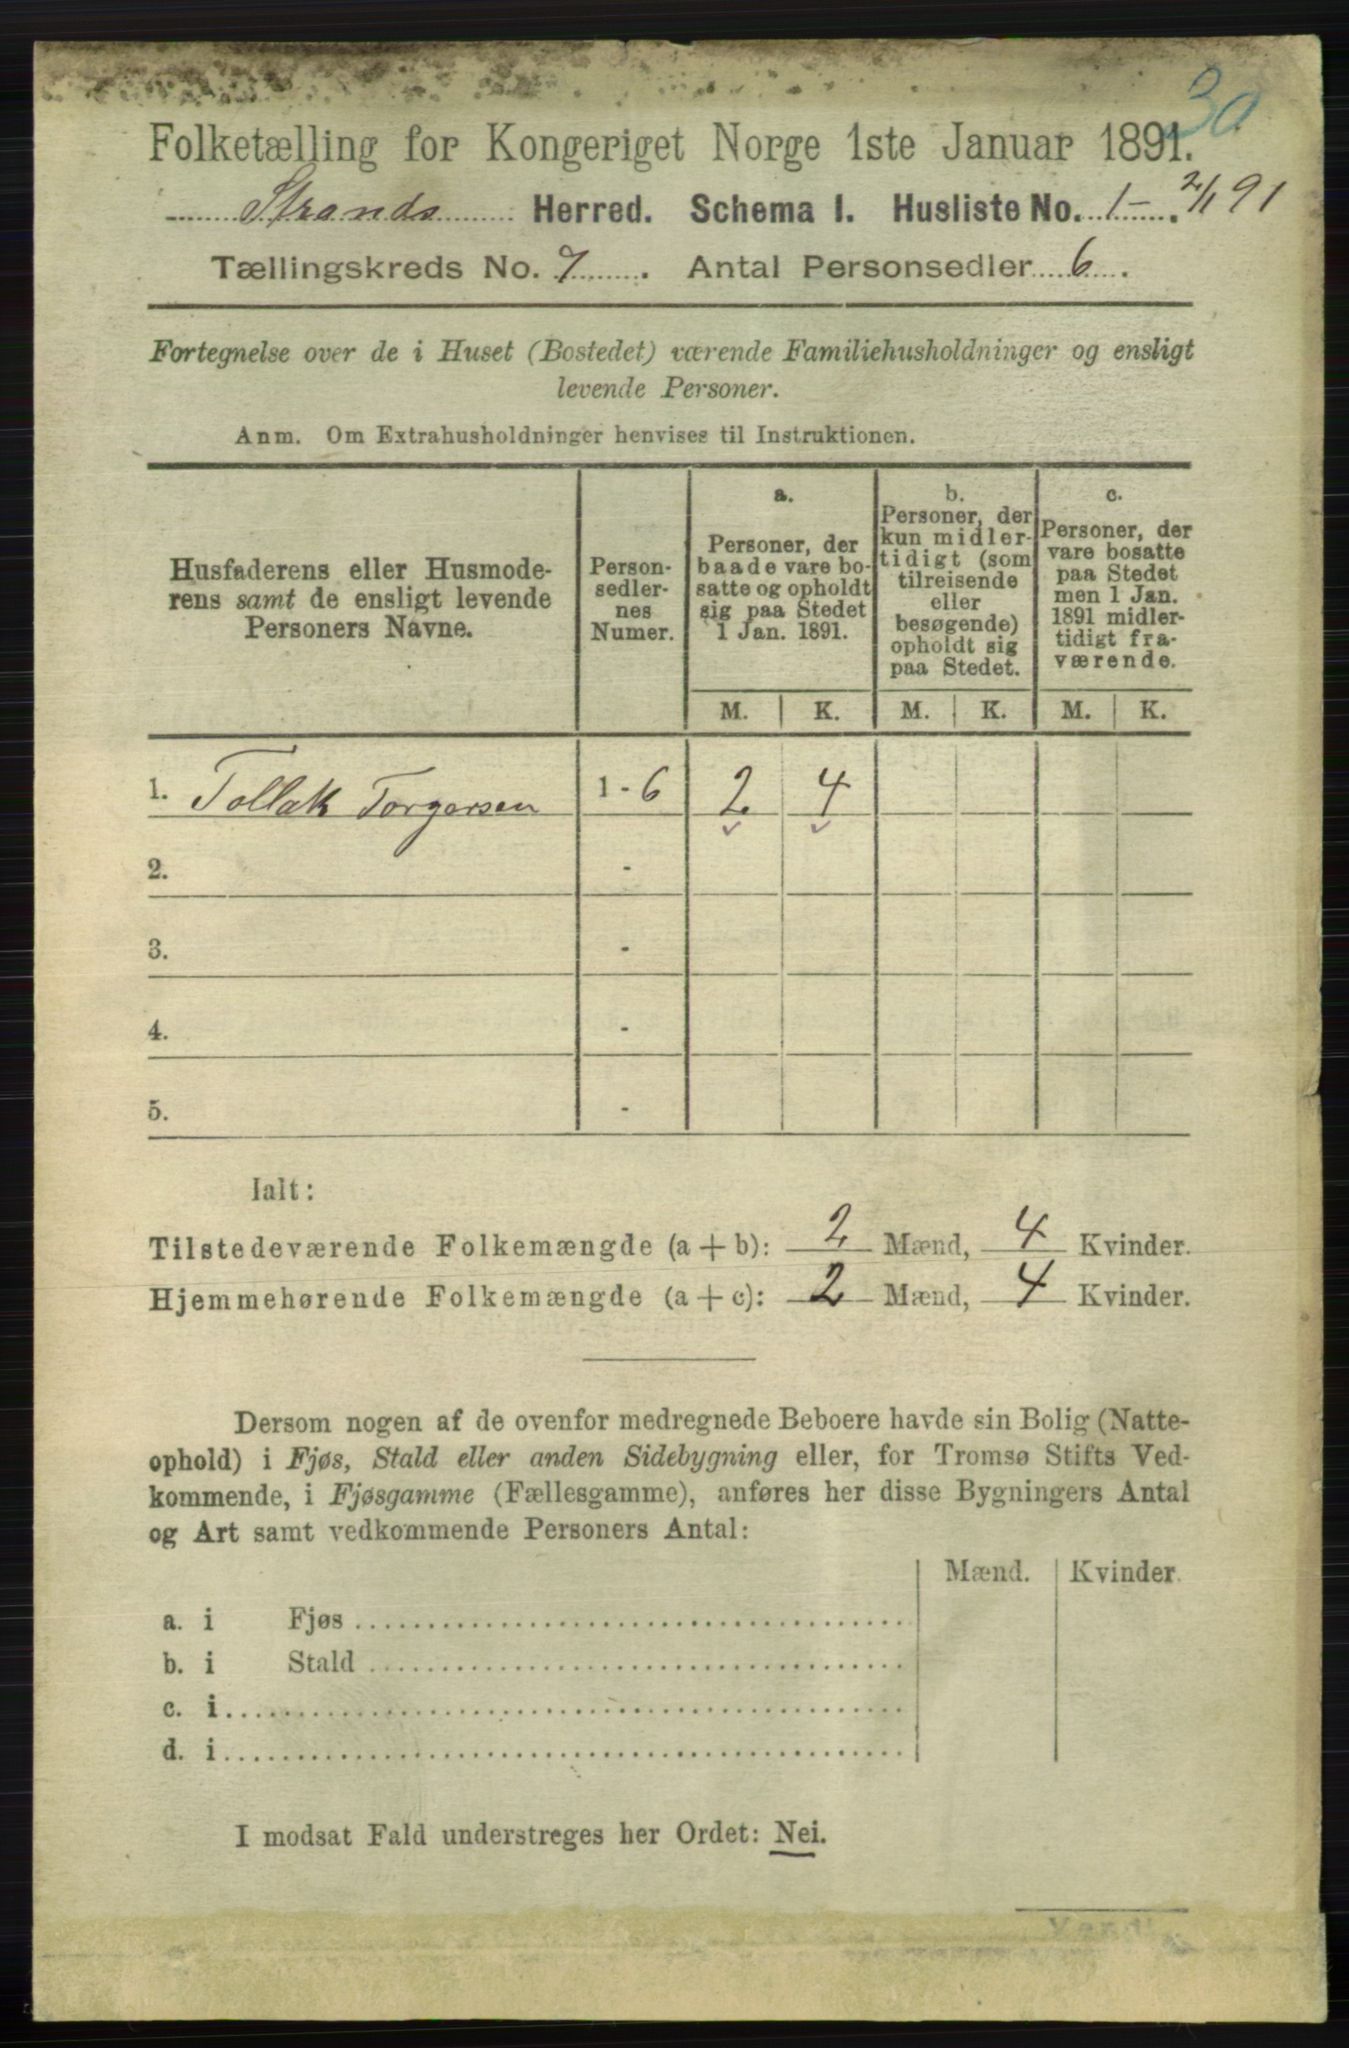 30
Folketælling for Kongeriget Norge 1ste Januar 1891.
Strands Herred. Schema I. Husliste No. 1- . 2/1 91
Tællingskreds No. 7 . Antal Personsedler 6 .
Fortegnelse over de i Huset (Bostedet) værende Familiehusholdninger og ensligt
levende Personer.
Anm. Om Extrahusholdninger henvises til Instruktionen.
Husfaderens eller Husmode-
rens samt de ensligt levende
Personers Navne.
Person-
sedler-
nes
Numer.
a.
Personer, der
baade vare bo-
satte og opholdt
sig paa Stedet
1 Jan. 1891.
b.
Personer, der
kun midler-
tidigt (som
tilreisende
eller
besøgende)
opholdt sig
paa Stedet.
c.
Personer, der
vare bosatte
paa Stedet
men 1 Jan.
1891 midler-
tidigt fra-
værende.
M. K. M. K. M. K.
1. Tollak Torgersen 1 - 6 2 4
2. -
3. -
4. -
5. -
Ialt:
Tilstedeværende Folkemængde (a + b): 2 Mænd, 4 Kvinder.
Hjemmehørende Folkemængde (a + c): 2 Mænd, 4 Kvinder.
Dersom nogen af de ovenfor medregnede Beboere havde sin Bolig (Natte-
ophold) i Fjøs, Stald eller anden Sidebygning eller, for Tromsø Stifts Ved-
kommende, i Fjøsgamme (Fællesgamme), anføres her disse Bygningers Antal
og Art samt vedkommende Personers Antal:
Mænd. Kvinder.
a. i Fjøs
b. i Stald
c. i
d. i
I modsat Fald understreges her Ordet: Nei.
Vend!